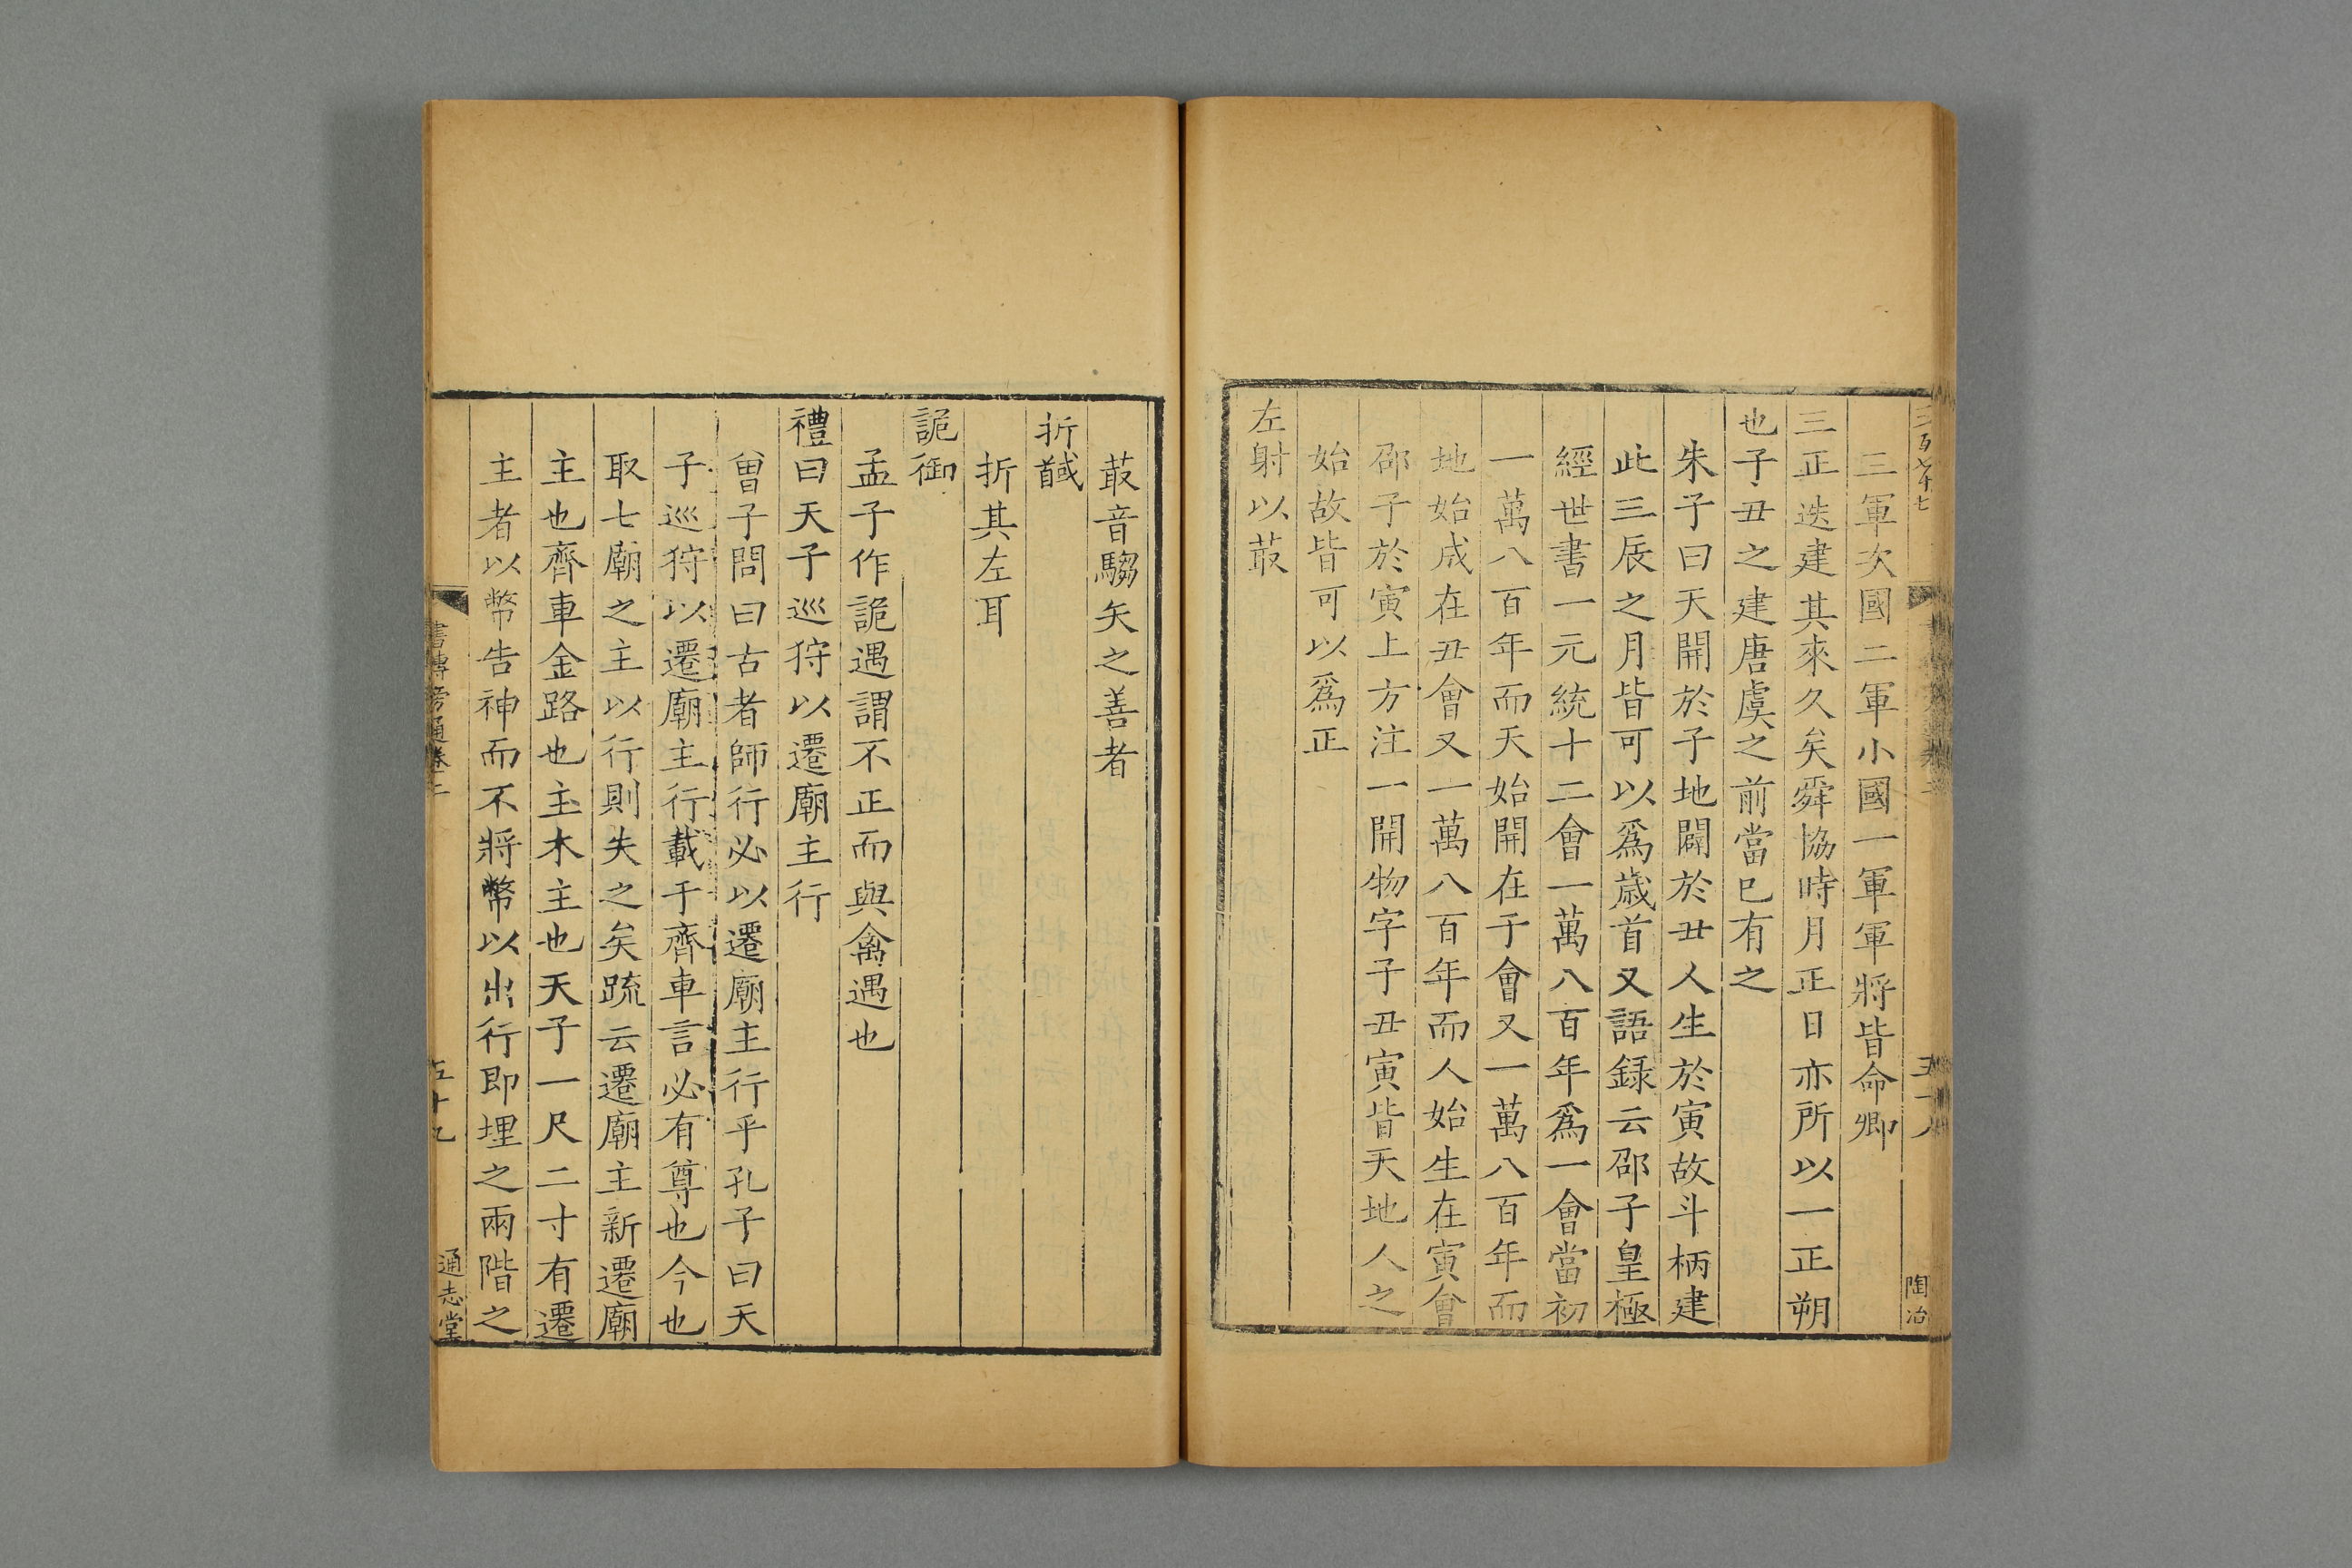 三百七十七
五十八
陶冶
三軍次國二軍小國一軍軍將皆命卿
三正迭建其來久矣舜協時月正日亦所以一正朔
也子丑之建唐虞之前當已有之
朱子曰天開於子地闢於丑人生於寅故斗柄建
此三辰之月皆可以爲歲首又語録云邵子皇極
經世書一元統十二會一萬八百年爲一會當初
一萬八百年而天始開在子會又一萬八百年而
地始成在丑會又一萬八百年而人始生在寅會
邵子於寅上方注一開物字子丑寅皆天地人之
始故皆可以爲正
左射以菆
菆音騶矢之善者
折馘
折其左耳
詭御
孟子作詭遇謂不正而與禽遇也
禮曰天子巡狩以遷廟主行
曾子問曰古者師行必以遷廟主行乎孔子曰天
子巡狩以遷廟主行載于齊車言必有尊也今也
取七廟之主以行則失之矣疏云遷廟主新遷廟
主也齊車金路也主木主也天子一尺二寸有遷
主者以幣告神而不將幣以出行即埋之兩階之
書傳旁通卷二
五十九
通志堂